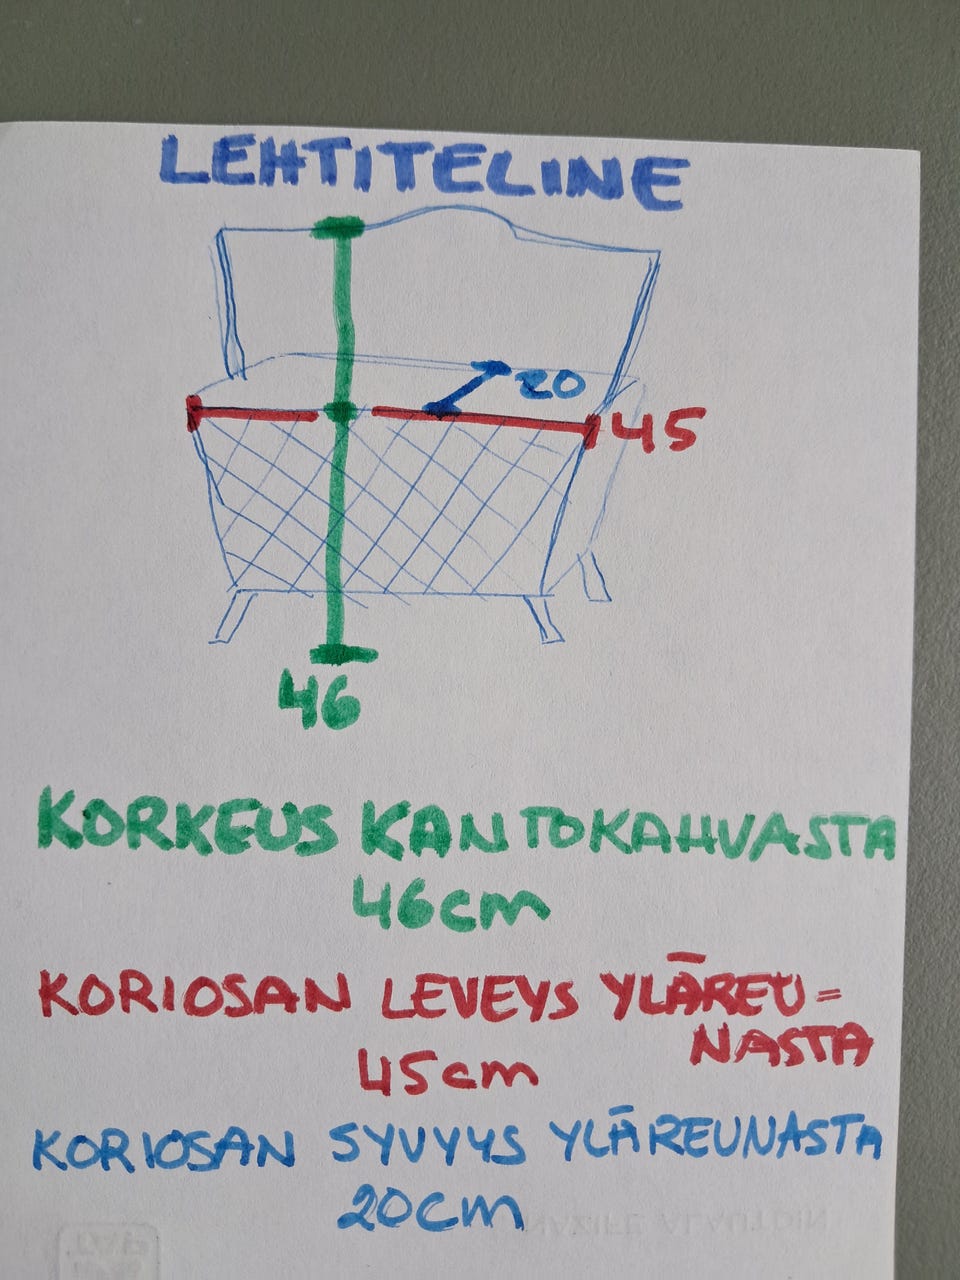 LEHTITELINE
20
45
46
KORKEUS KANTOKAHVASTA
46cm
KORIOSAN LEVEYS YLÄREU=
NASTA
45cm
KORIOSAN SYVYYS YLÄREUNASTA
20cm